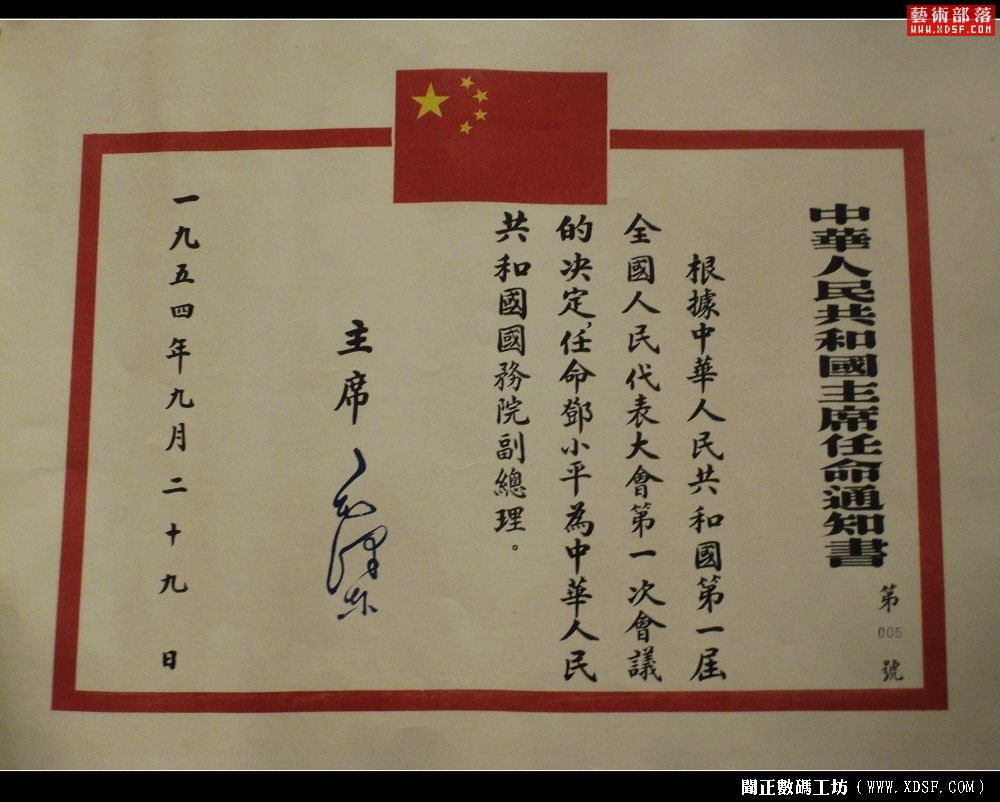 藝術部落
WWW.XDSF.COM
中華人民共和國主席任命通知書
第
005
號
根據中華人民共和國第一屆
全國人民代表大會第一次會議
的决定，任命鄧小平為中華人民
共和國國務院副總理。
主席 毛澤東
一九五四年九月二十九日
聞正數碼工坊（WWW.XDSF.COM）